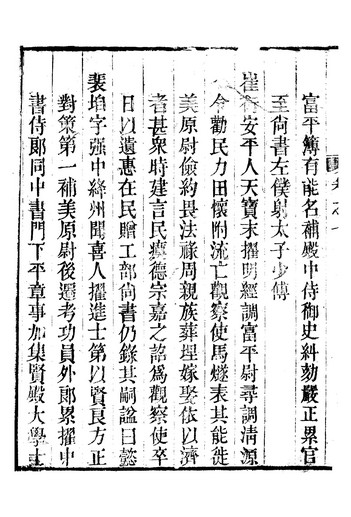 富平簿有能名補殿中侍御史糾劾嚴正累官
至尚書左僕射太子少傅
崔衍安平人天寶末擢明經調富平尉尋調清源
令勸民力田懷附流亡觀察使馬燧表其能徙
美原尉儉約畏法祿周親族葬埋嫁娶依以濟
者甚衆時建言民瘼德宗嘉之詔爲觀察使卒
日以遺惠在民贈工部尚書仍錄其嗣諡曰懿
裴垍字弘中絳州聞喜人擢進士第以賢良方正
對策第一補美原尉後遷考功員外郎累擢中
書侍郎同中書門下平章事加集賢殿大學士